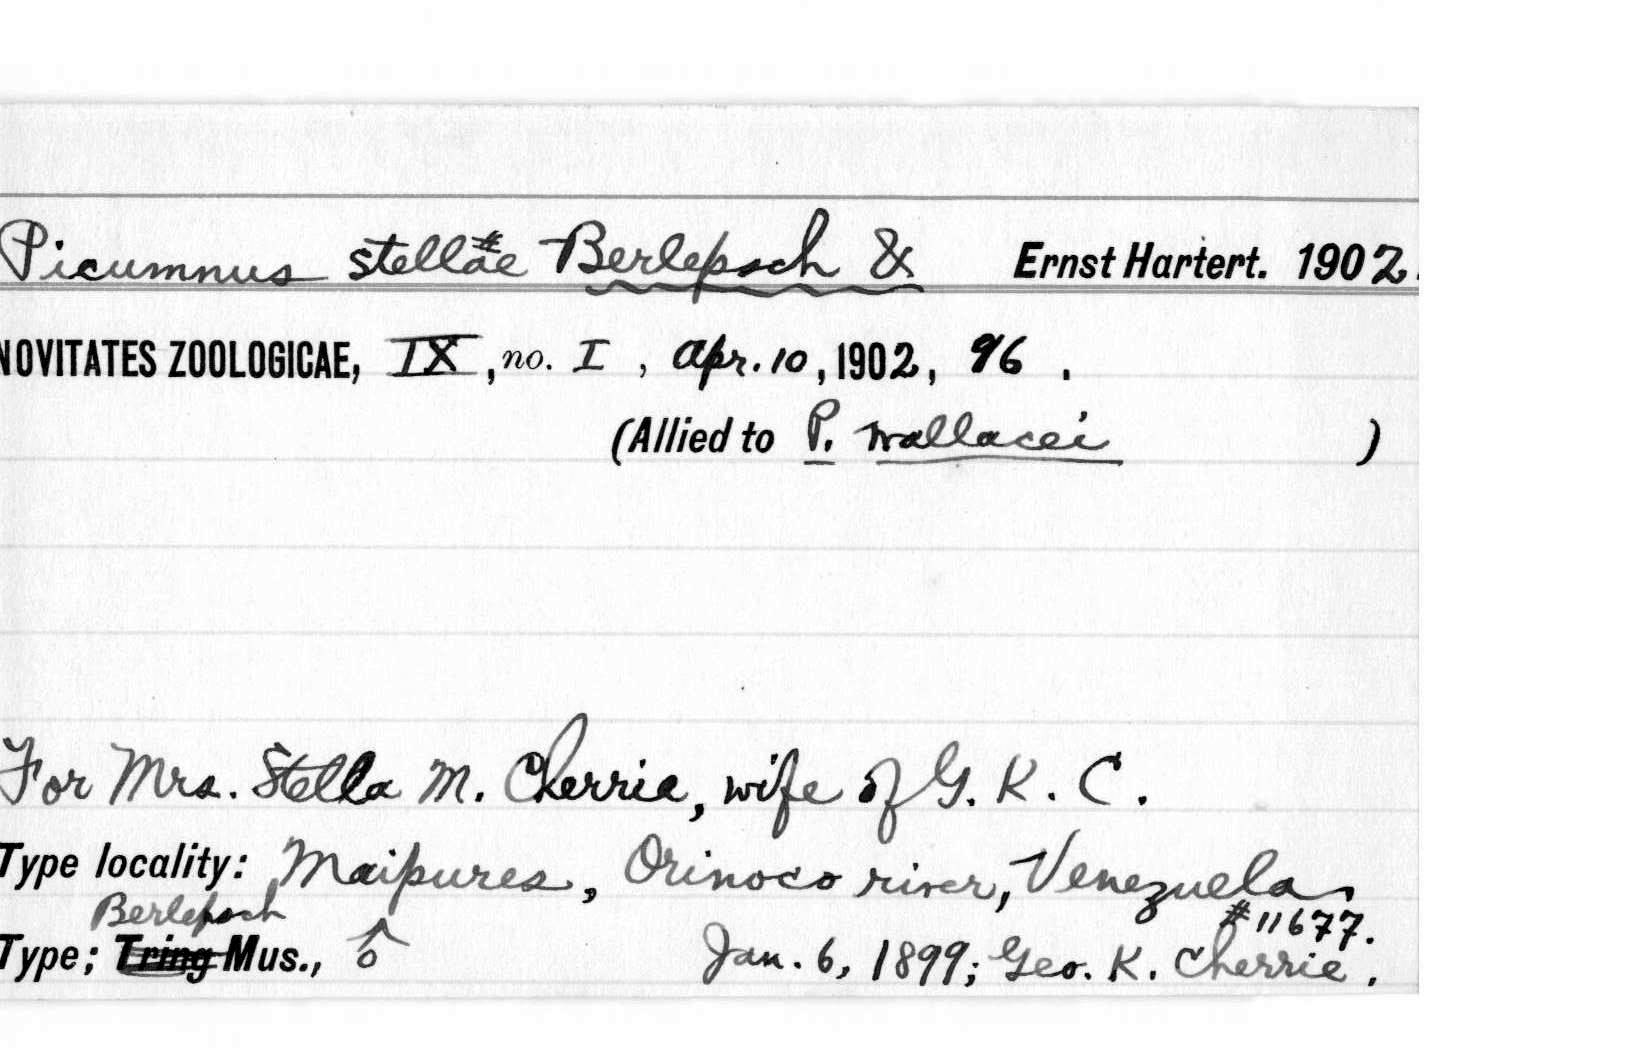 Picumnus stellae# Berlepsch & Ernst Hartert. 1902.
NOVITATES ZOOLOGICAE, IX, no. I, Apr. 10, 1902, 96.
(Allied to P. wallacei )
For Mrs. Stella M. Cherrie, wife of G. K. C.
Type locality: Maipures, Orinoco river, Venezuela,
Berlepsch #11677.
Type; Tring Mus., ♂ Jan. 6, 1899; Geo. K. Cherrie.